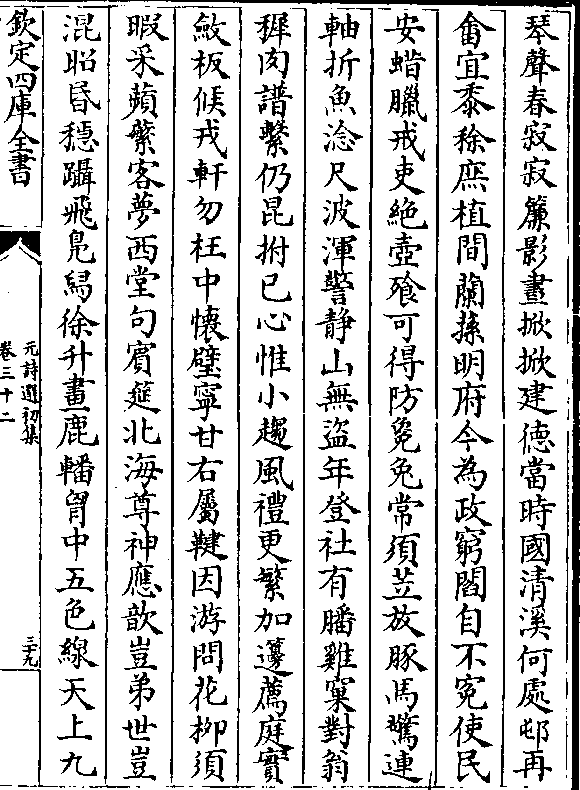 琴聲春寂寂簾影晝掀掀建德當時國清溪何處邨再
畬宜黍稌庶植間蘭蓀明府今為政窮閻自不寃使民
安蜡臘戒吏絶壺飱可得防毚兔常須苙放豚馬驚連
軸折魚淰尺波渾警静山無盜年登社有膰雞窠對翁
穉肉譜繫仍昆拊已心惟小趨風禮更繁加籩薦庭實
斂板候戎軒勿枉中懷璧寧甘右屬鞬因游問花栁須
暇采蘋蘩客夢西堂句賓筵北海尊神應歆豈弟世豈
混昭昬穩躡飛鳬舄徐升畫鹿轓胷中五色線天上九
欽定四庫全書
元詩選初集
卷三十二
三十九